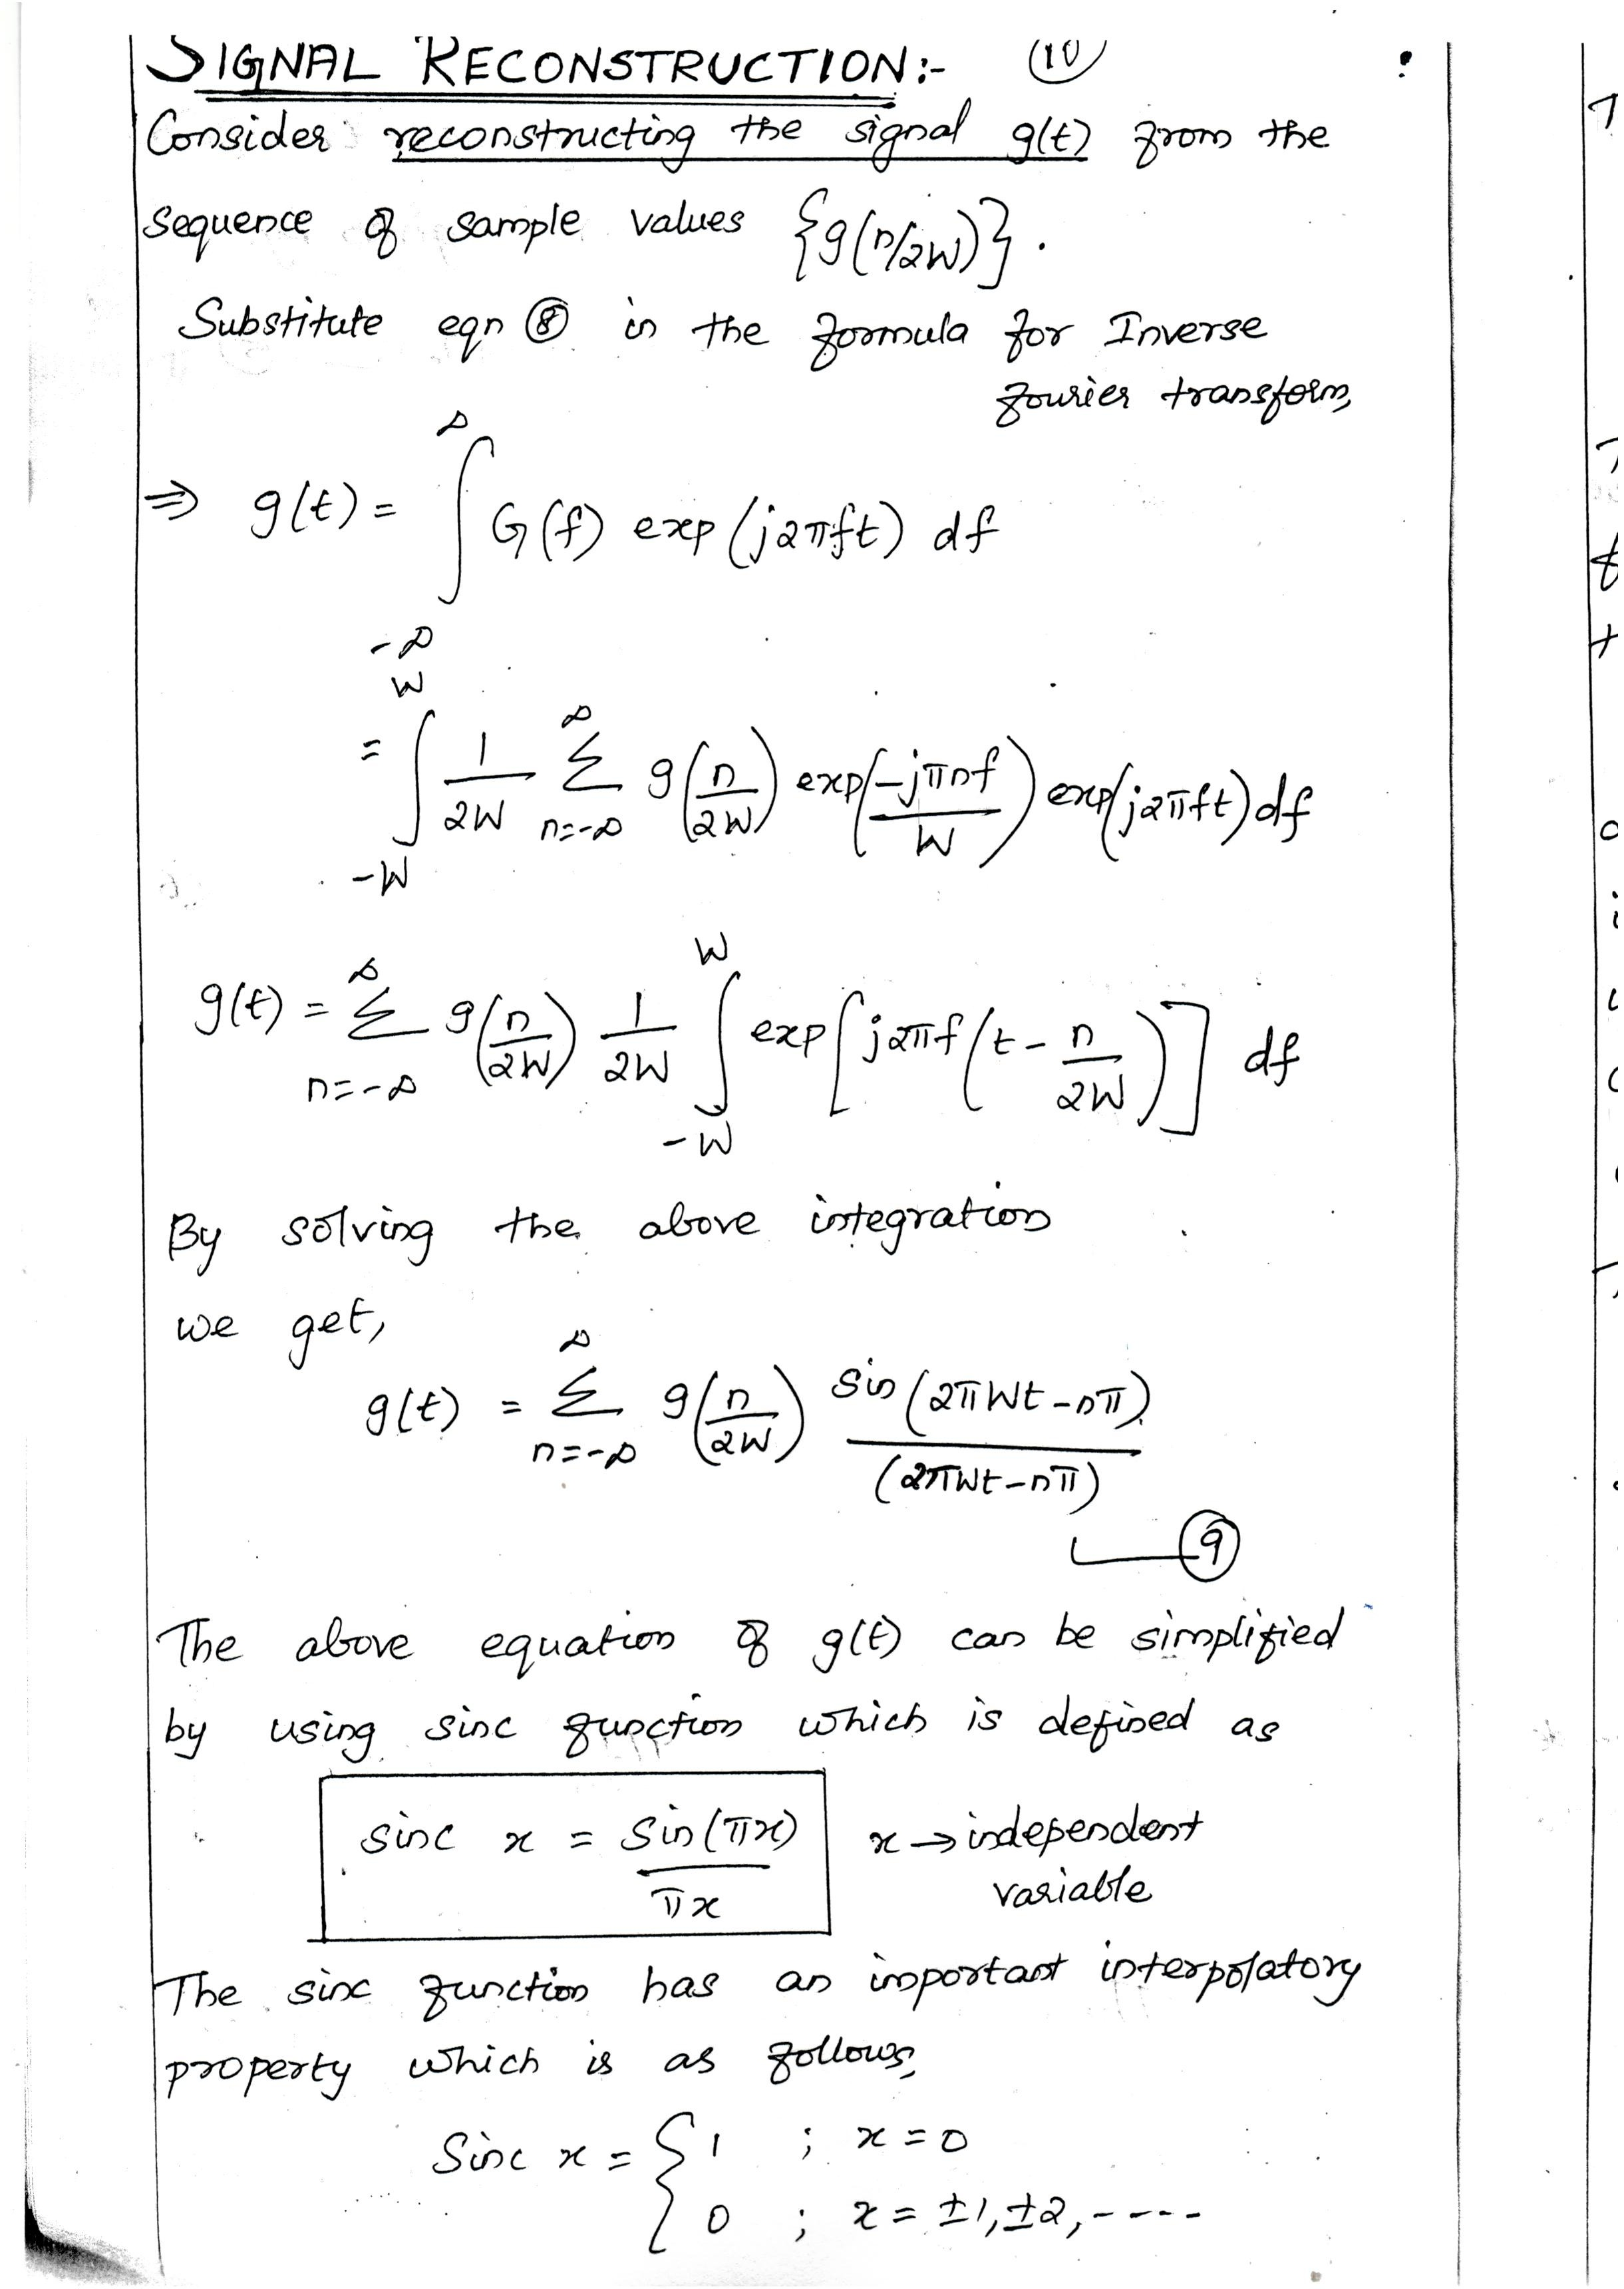 SIGNAL RECONSTRUCTION:- (10)
Consider reconstructing the signal g(t) from the
sequence of sample values {g(n/2W)}.
Substitute eqn ⑧ in the formula for Inverse
fourier transform,
⇒ g(t) = ∫_{-∞}^{∞} G(f) exp(j2πft) df
= ∫_{-W}^{W} 1/2W Σ_{n=-∞}^{∞} g(n/2W) exp(-jπnf/W) exp(j2πft) df
g(t) = Σ_{n=-∞}^{∞} g(n/2W) 1/2W ∫_{-W}^{W} exp[j2πf(t - n/2W)] df
By solving the above integration
we get,
g(t) = Σ_{n=-∞}^{∞} g(n/2W) sin(2πWt-nπ)/(2πWt-nπ)
⑨
The above equation of g(t) can be simplified
by using sinc function which is defined as
sinc x = sin(πx)/πx x → independent
variable
The sinc function has an important interpolatory
property which is as follows,
Sinc x = { 1 ; x = 0
0 ; x = ±1, ±2, ----